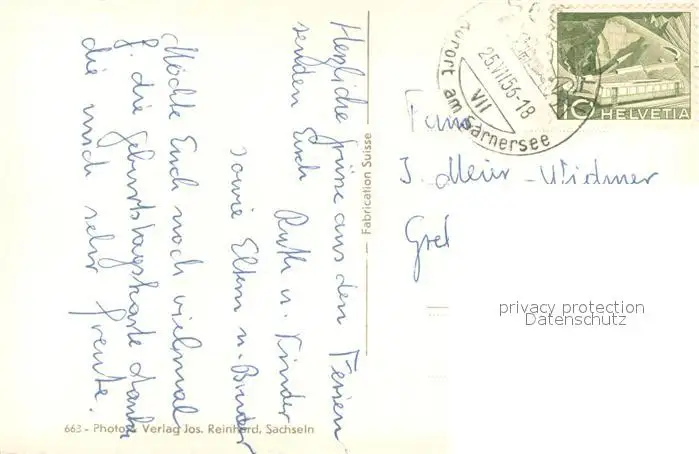 Herzliche Grüsse aus den Ferien
senden Euch Ruth u. Kinder
sowie Eltern u. Bruder
Möchte Euch noch vielmal
f. die Geburtstagskarte danken
die mich sehr freute.
Fabrication Suisse
663 - Photo & Verlag Jos. Reinhard, Sachseln
Kurort am Sarnersee
25.VII.56-18
VII
10 HELVETIA
J. Meier - Widmer
privacy protection
Datenschutz